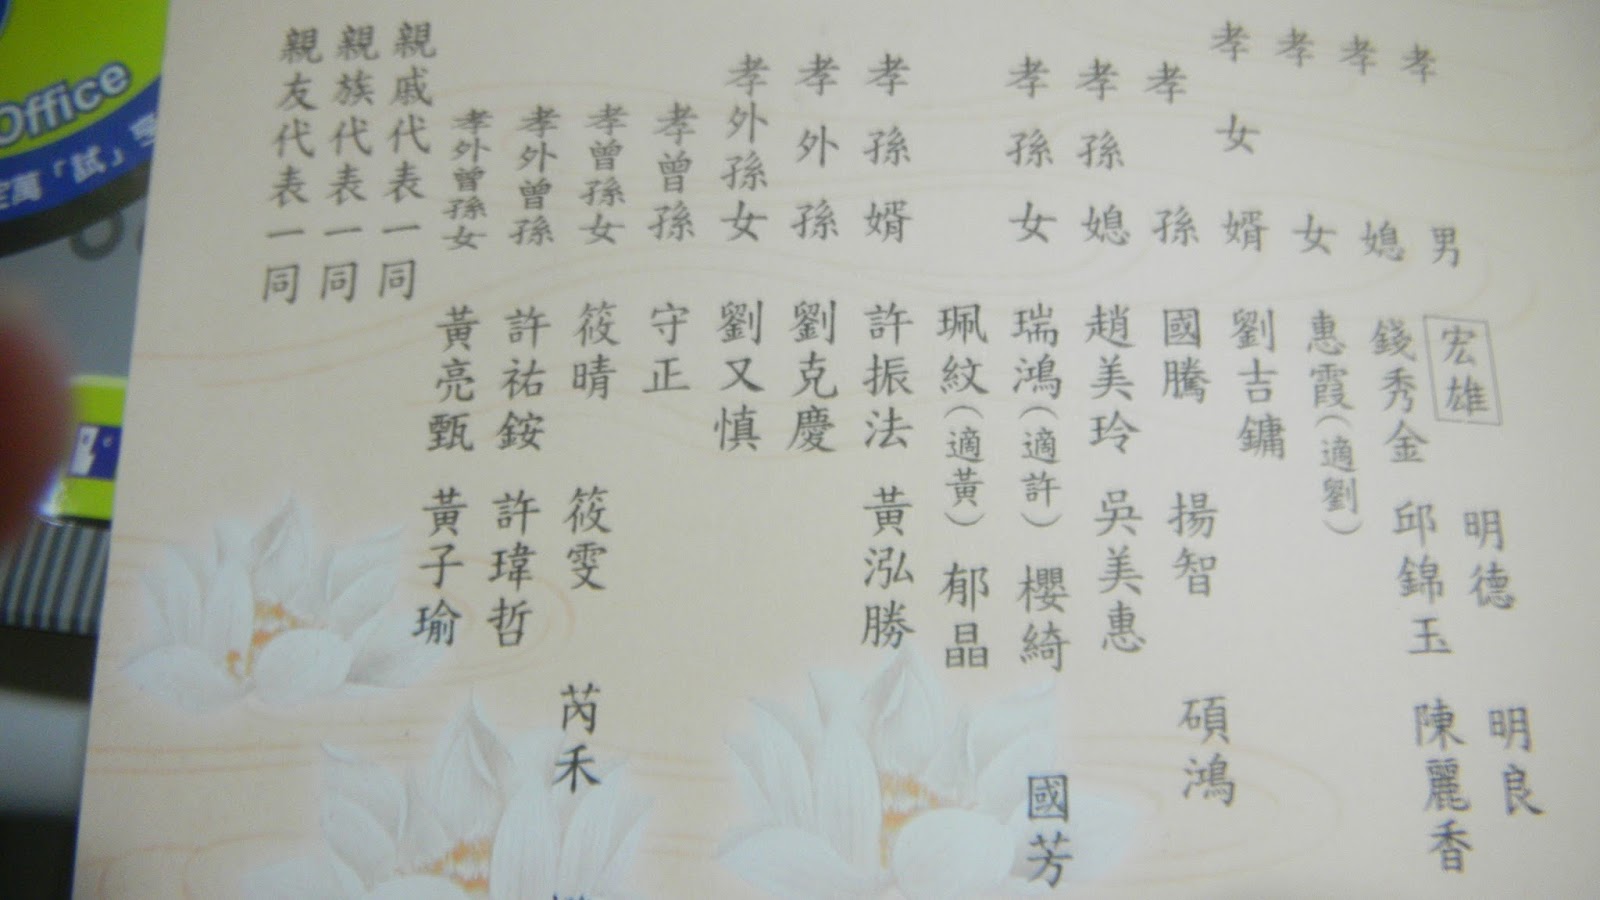 孝男 宏雄 明德 明良
孝媳 錢秀金 邱錦玉 陳麗香
孝女 惠霞（適劉）
孝女婿 劉吉鏞
孝孫 國騰 揚智 碩鴻
孝孫媳 趙美玲 吳美惠
孝孫女 瑞鴻（適許） 櫻綺 國芳
珮紋（適黃） 郁晶
孝孫婿 許振法 黃泓勝
孝外孫 劉克慶
孝外孫女 劉又慎
孝曾孫 守正
孝曾孫女 筱晴 筱雯 芮禾
孝外曾孫 許祐銨 許瑋哲
孝外曾孫女 黃亮甄 黃子瑜
親戚代表一同
親族代表一同
親友代表一同
Office
萬「試」